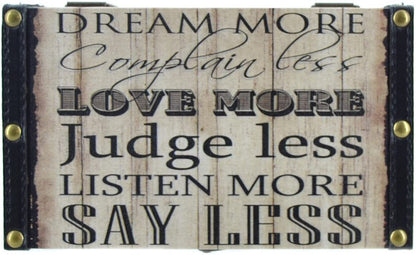 DREAM MORE
Complain less
LOVE MORE
Judge less
LISTEN MORE
SAY LESS